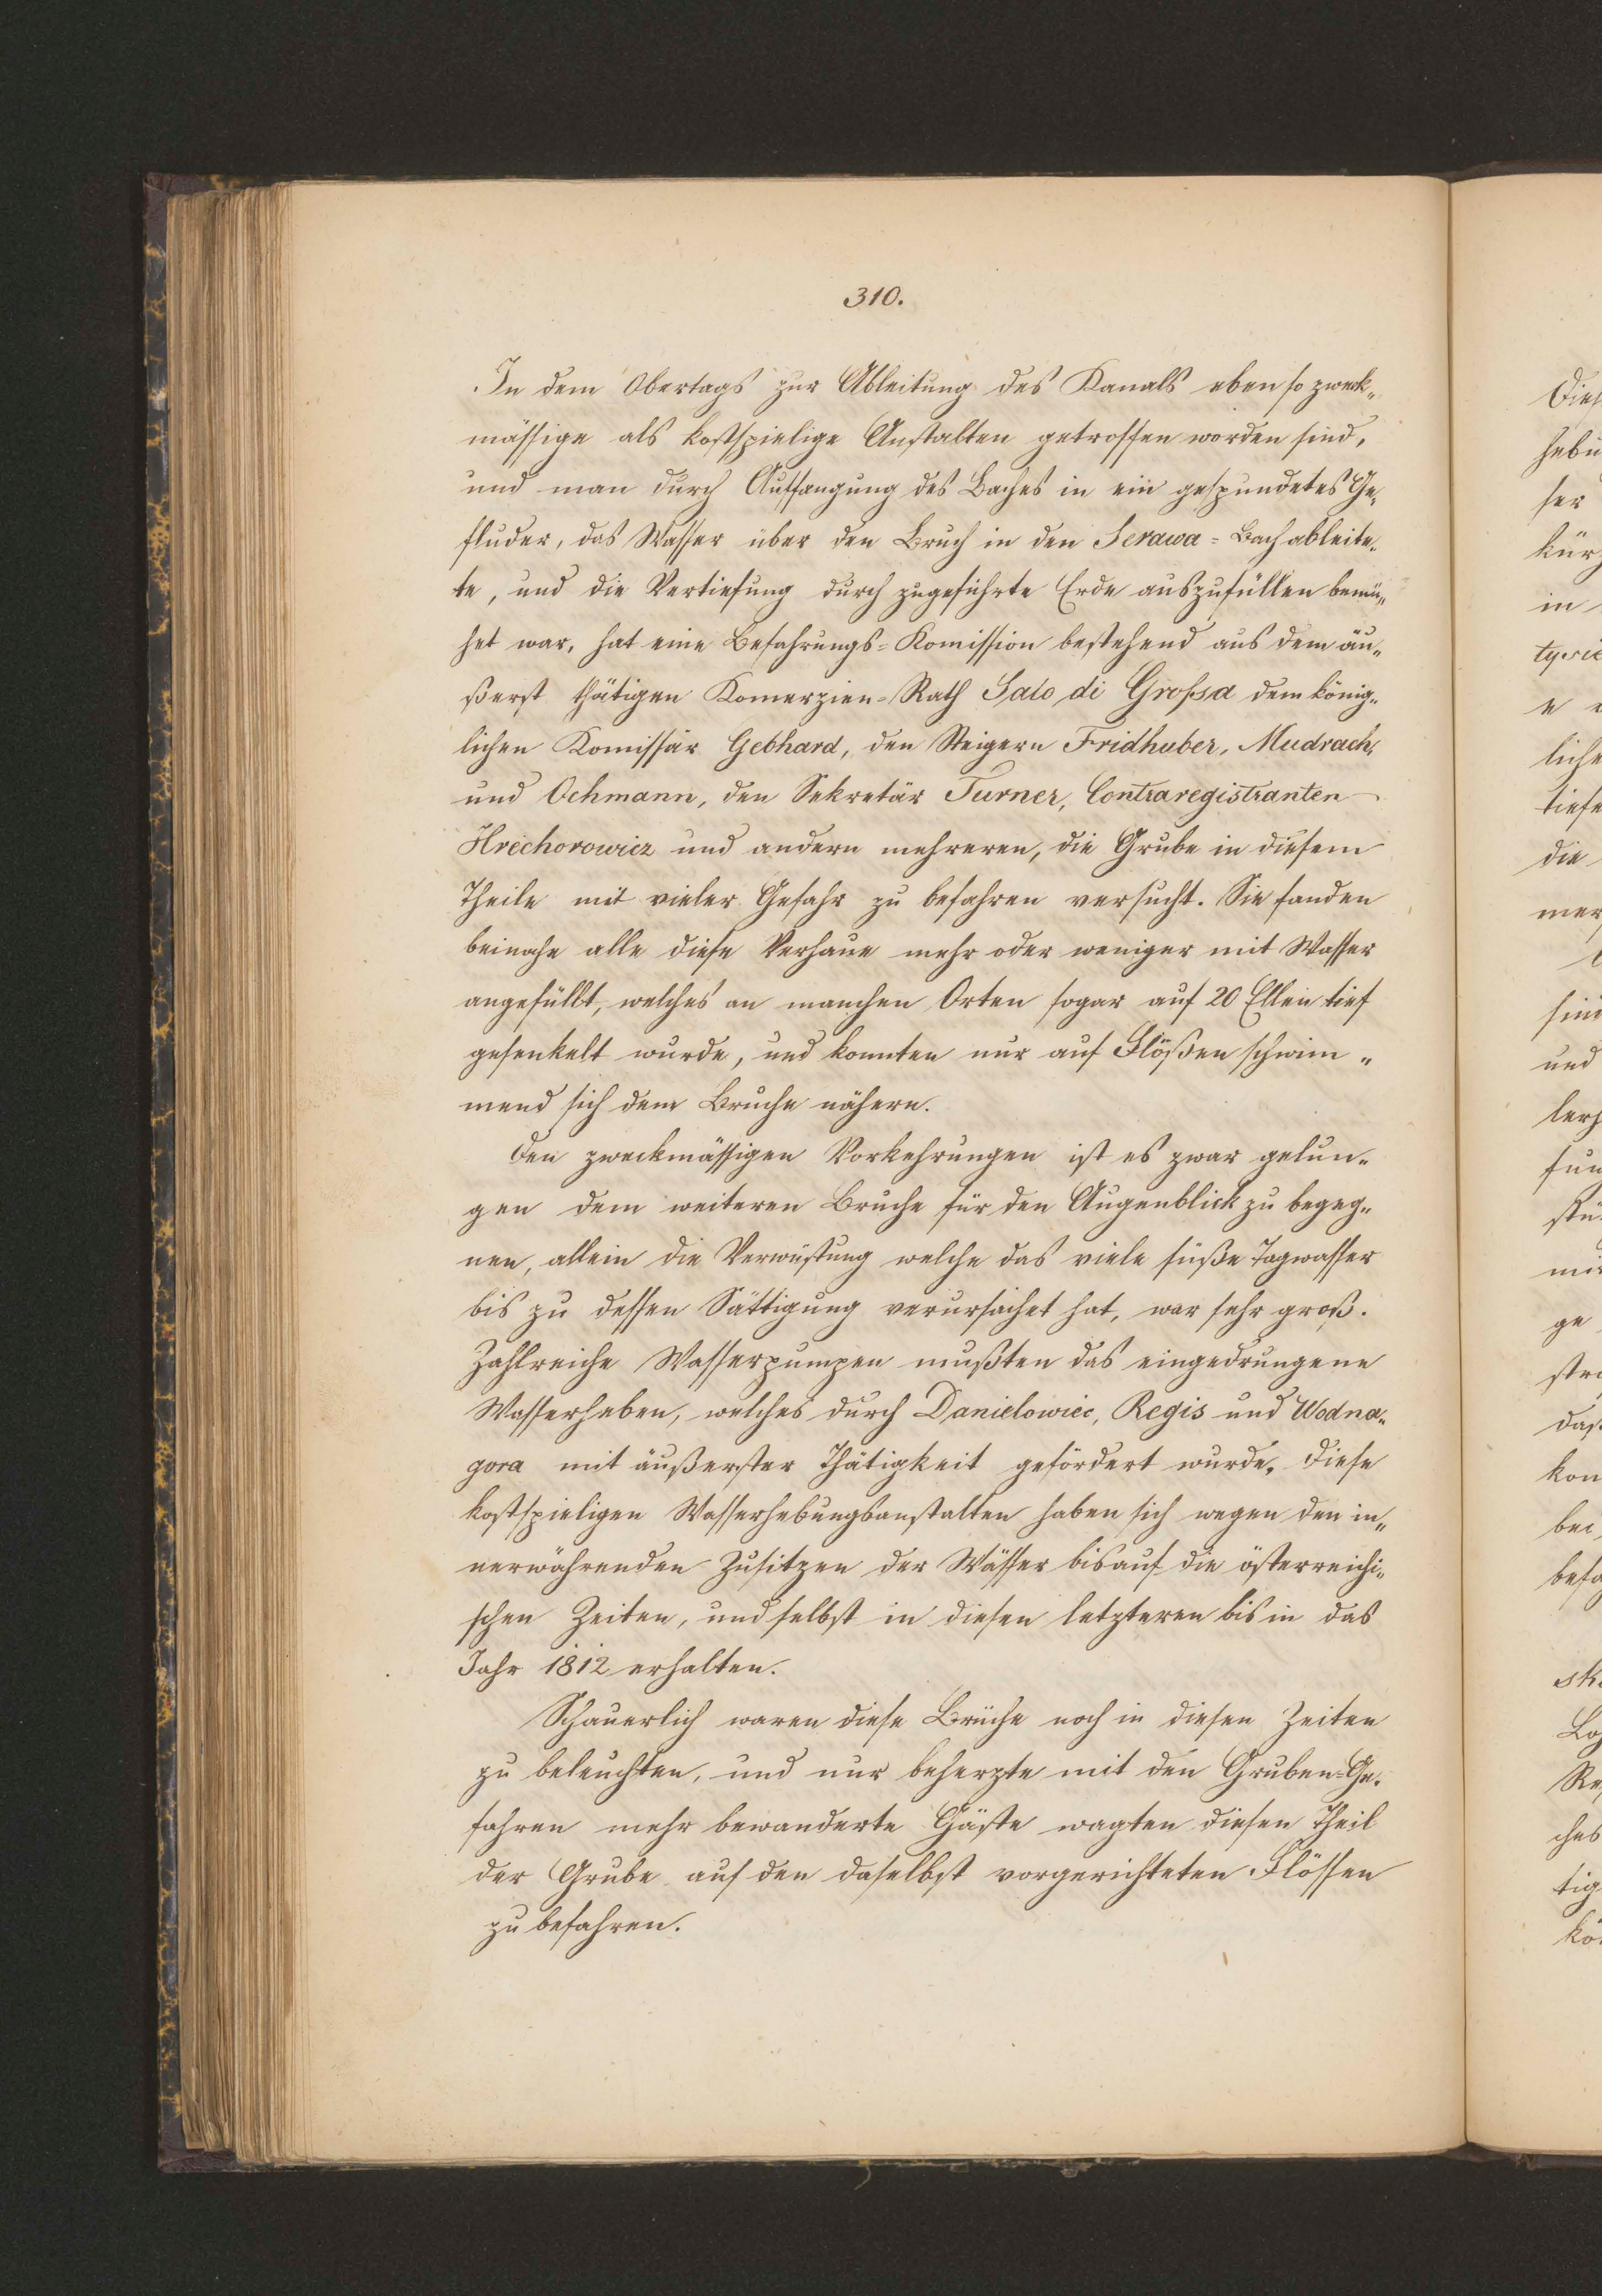 310.
In dem Obertags zur Ableitung des Kanals eben so zweck„
mässige als kostspielige Anstalten getroffen worden sind,
und man durch Auffangung des Baches in ein gespundetes Ge„
fluder, das Wasser über den Bruch in den Serawa-Bach ableite„
te, und die Vertiefung durch zugeführte Erde auszufüllen bemü„
het war, hat eine Befahrungs-Komission bestehend aus dem äu„
ßerst thätigen Komerzien-Rath Salo di Grossa dem könig„
lichen Komissär Gebhard, den Steigern Fridhuber, Mudrach,
und Ochmann, den Sekretär Turner, Contraregistranten
Hrechorowicz und andern mehreren, die Grube in diesem
Theile mit vieler Gefahr zu befahren versucht. Sie fanden
beinahe alle diese Verhaue mehr oder weniger mit Wasser
angefüllt, welches an manchen Orten sogar auf 20 Ellen tief
gesenkelt wurde, und konnten nur auf Flößen schwim„
mend sich dem Bruche nähern.
Den zweckmässigen Vorkehrungen ist es zwar gelun„
gen dem weiteren Bruche für den Augenblick zu begeg„
nen, allein die Verwüstung welche das viele süße Tagwasser
bis zu dessen Sättigung verursachet hat, war sehr groß.
Zahlreiche Wasserpumpen mußten das eingedrungene
Wasser heben, welches durch Danielowiec, Regis und Wodna„
gora mit äußerster Thätigkeit gefördert wurde. Diese
kostspieligen Wasserhebungsanstalten haben sich wegen den in„
nerwährenden Zusitzen der Wässer bis auf die österreichi„
schen Zeiten, und selbst in diesen letzteren bis in das
Jahr 1812 erhalten.
Schauerlich waren diese Brüche noch in diesen Zeiten
zu beleuchten, und nur beherzte mit den Gruben-Ge„
fahren mehr bewanderte Gäste wagten diesen Theil
der Grube auf den daselbst vorgerichteten Flössen
zu befahren.